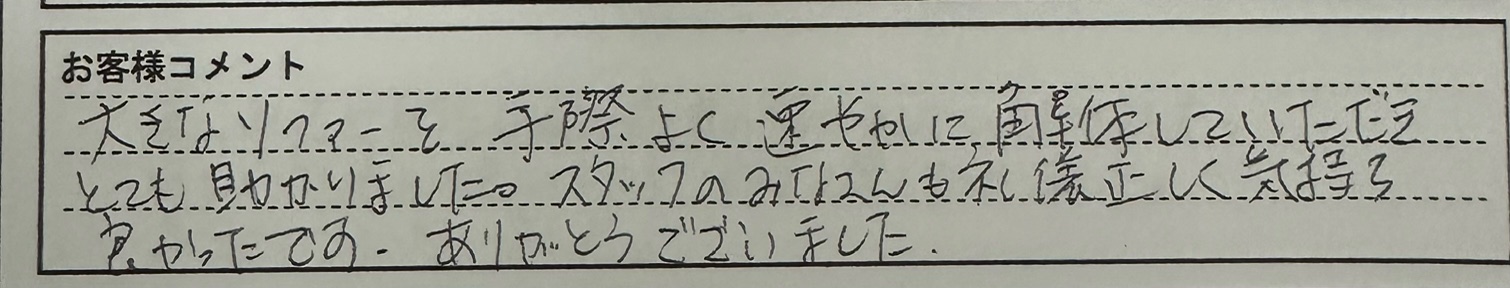 お客様コメント
大きなソファーを手際よく速やかに解体していただき
とても助かりました。スタッフのみなさんも礼儀正しく気持ち
良かったです。ありがとうございました。